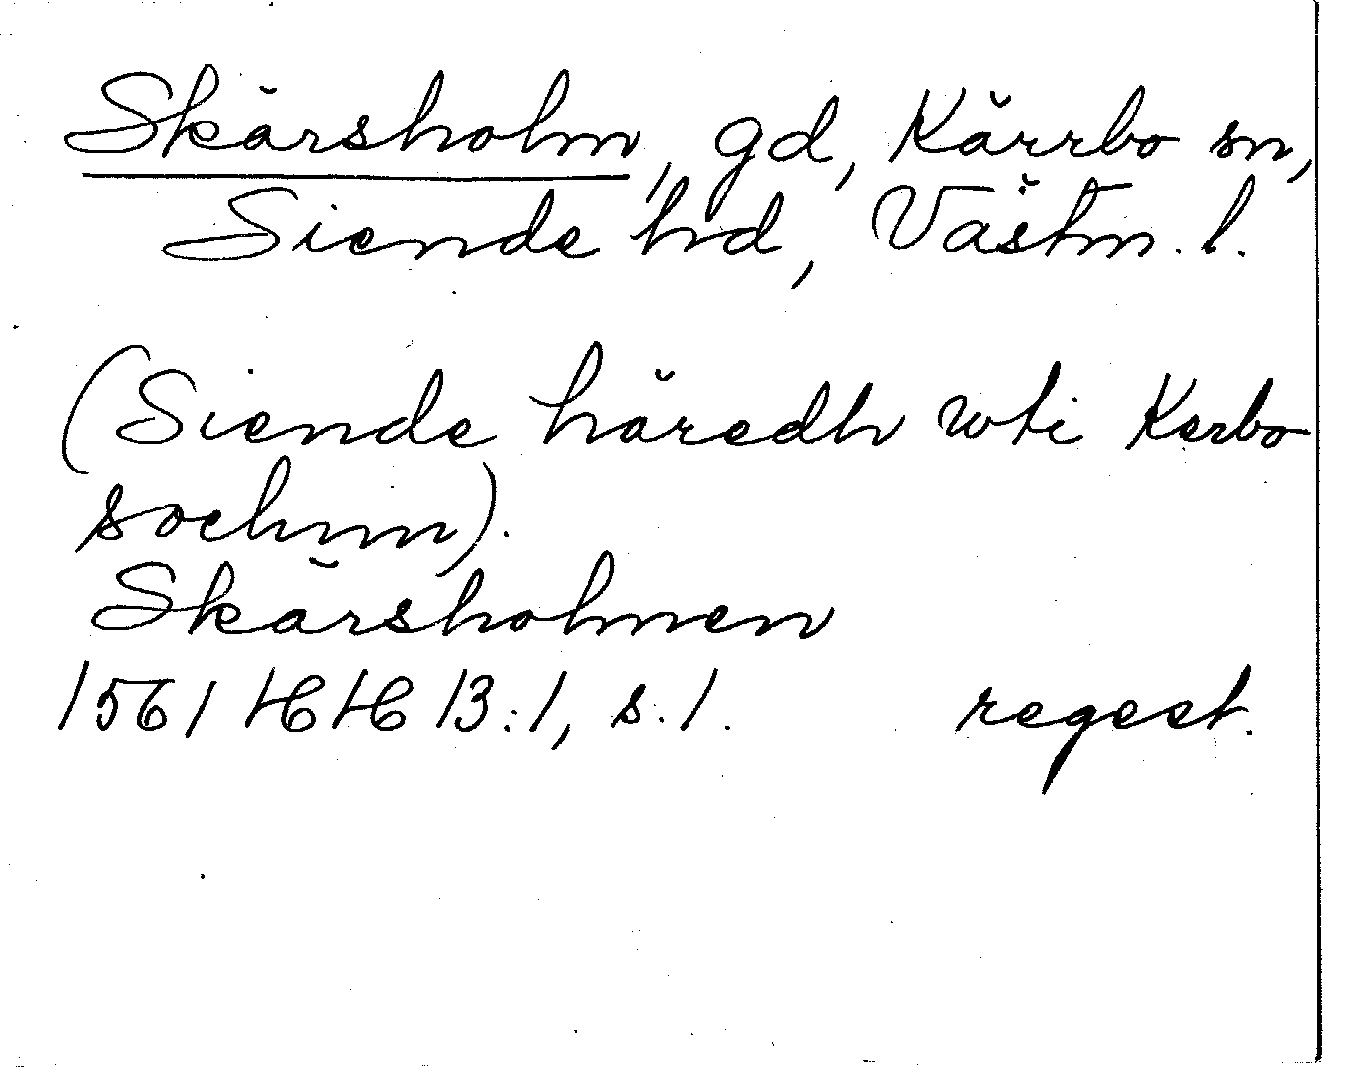 Skärsholm, gd, Kärrbo sn,
Siende hd, Västm. l.
(Siende häredh wti Kerbo
sochnn).
Skärsholmen
1561 HH 13:1, s. 1. regest.